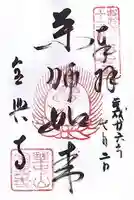 奉拝
平成廿六年
七月二日
薬師如来
全興寺